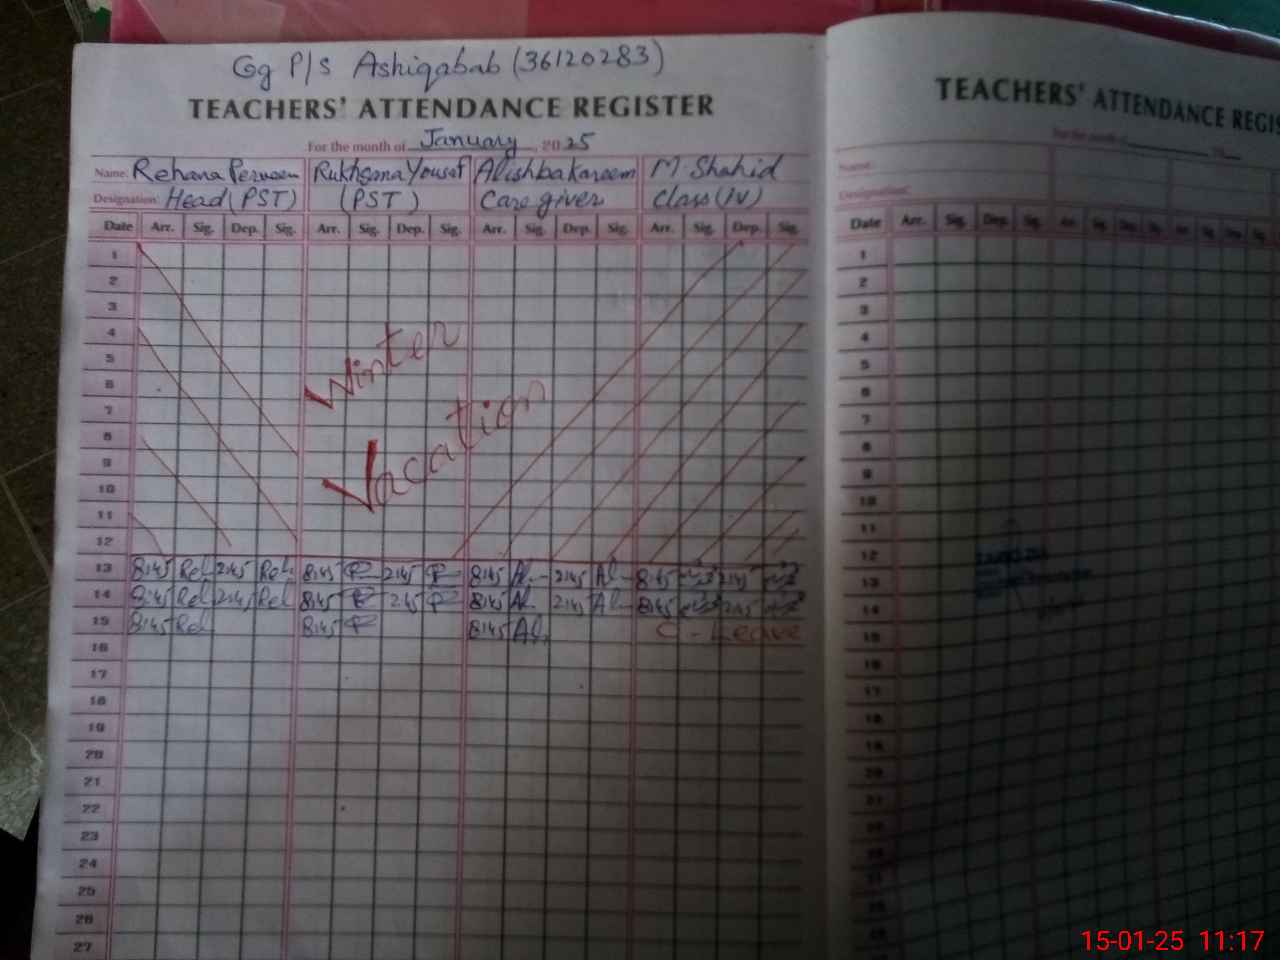 Gg P/S Ashiqabab (36120283)
TEACHERS' ATTENDANCE REGISTER
For the month of January, 2025
Name: Rehana Perveen Rukhsana Yousaf Alishba Kareem M Shahid
Designation: Head (PST) (PST) Care giver Class (iv)
Date Arr. Sig. Dep. Sig. Arr. Sig. Dep. Sig. Arr. Sig. Dep. Sig. Arr. Sig. Dep. Sig.
1
2
3
4
5
6
7
8
9
10
11
12
Winter
Vacation
13 8:45 Reh 2:45 Reh 8:45 2:45 8:45 Al 2:45 Al 8:45 2:45
14 8:45 Reh 2:45 Reh 8:45 2:45 8:45 Al 2:45 Al 8:45 2:45
15 8:45 Reh 8:45 8:45 Al C - Leave
16
17
18
19
20
21
22
23
24
25
26
27
TEACHERS' ATTENDANCE REGIS
For the month of
Name:
Designation:
Date Arr. Sig. Dep. Sig. Arr. Sig. Dep. Sig. Arr. Sig. Dep. Sig.
1
2
3
4
5
6
7
8
9
10
11
12
13
14
15
16
17
18
19
20
21
15-01-25 11:17